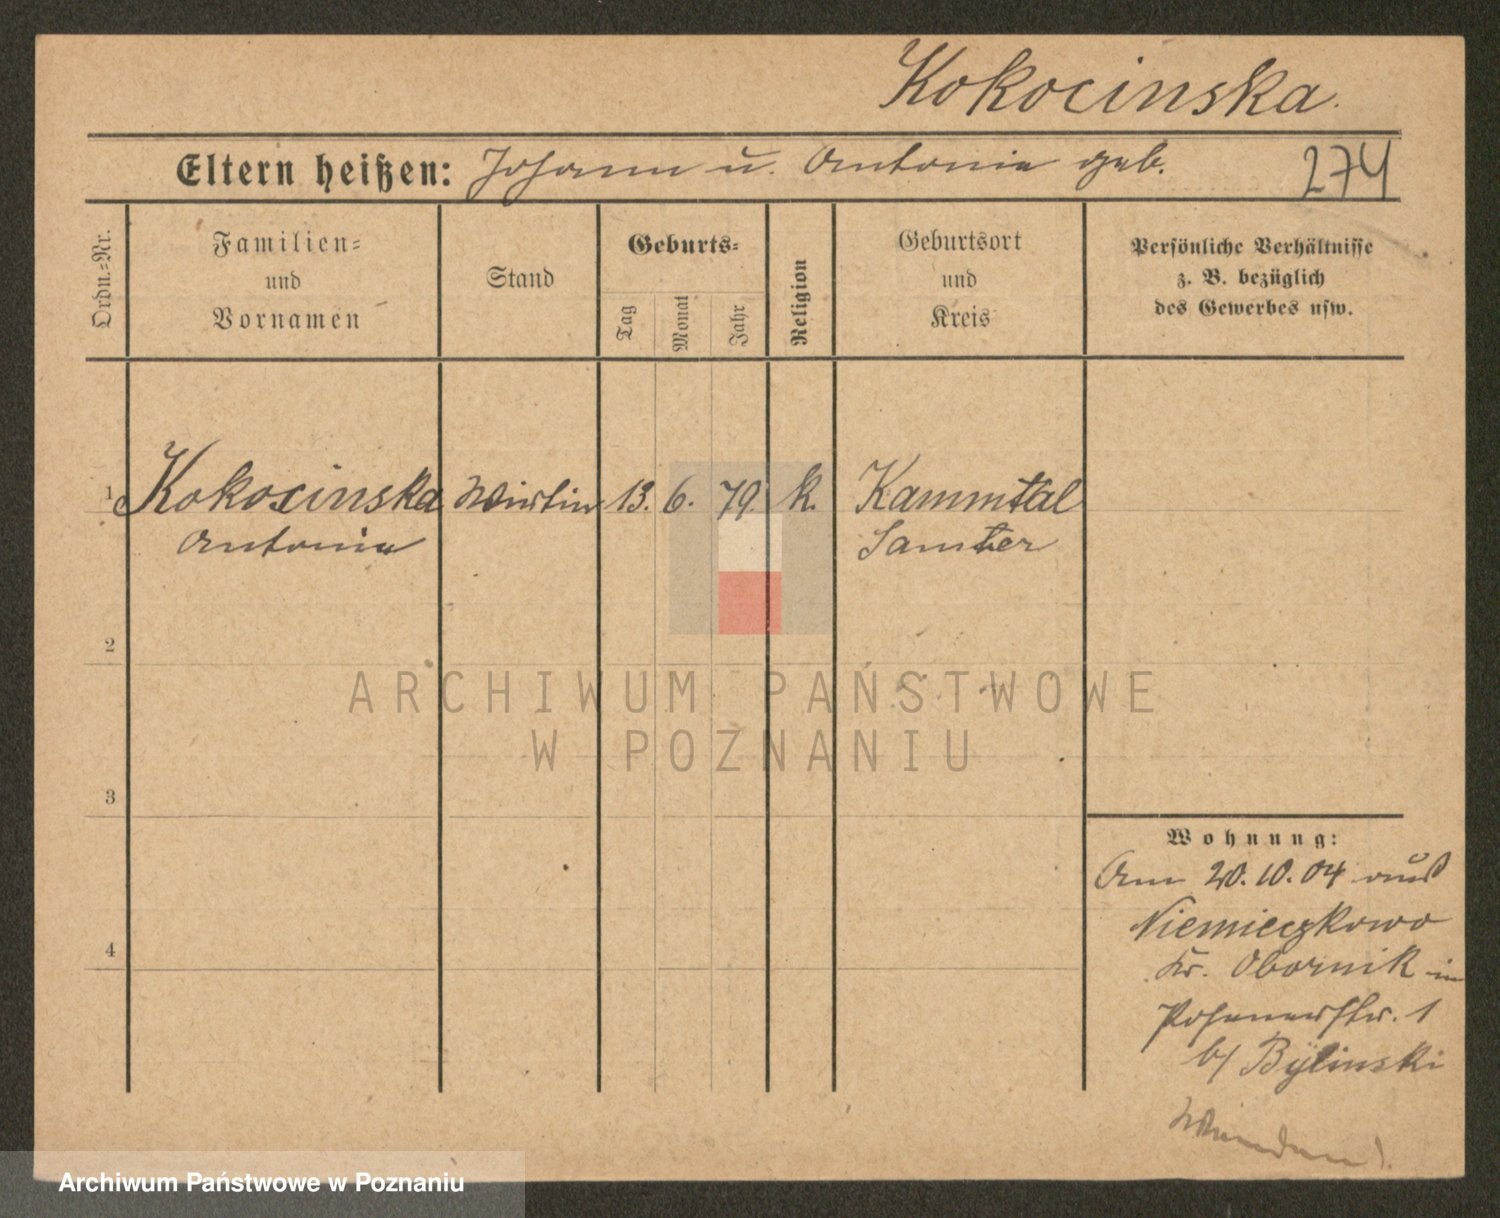 Kokocinska.
Eltern heißen: Johann u. Antonie geb. 274
Ordn.=Nr.
Familien=
und
Vornamen
Stand
Geburts=
Tag
Monat
Jahr
Religion
Geburtsort
und
Kreis
Persönliche Verhältnisse
z. B. bezüglich
des Gewerbes usw.
1 Kokocinska Wirtin 13. 6. 79. k. Kammtal
Antonie Samter
2
3
4
Wohnung:
Am 20.10.04 aus
Niemieczkowo
Kr. Obornik in
Posenerstr. 1
b/ Bylinski
ARCHIWUM PAŃSTWOWE
W POZNANIU
Archiwum Państwowe w Poznaniu